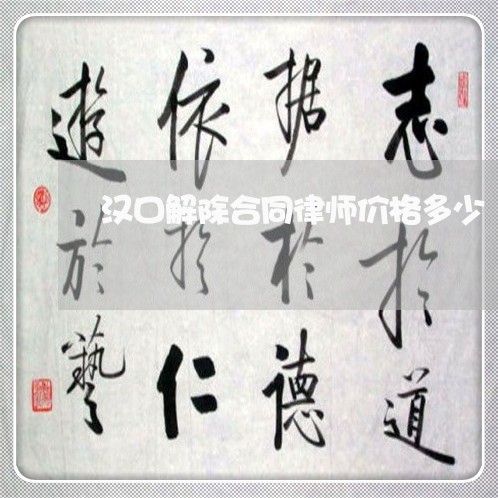 志於道
据於德
依於仁
遊於藝
汉口解除合同律师价格多少